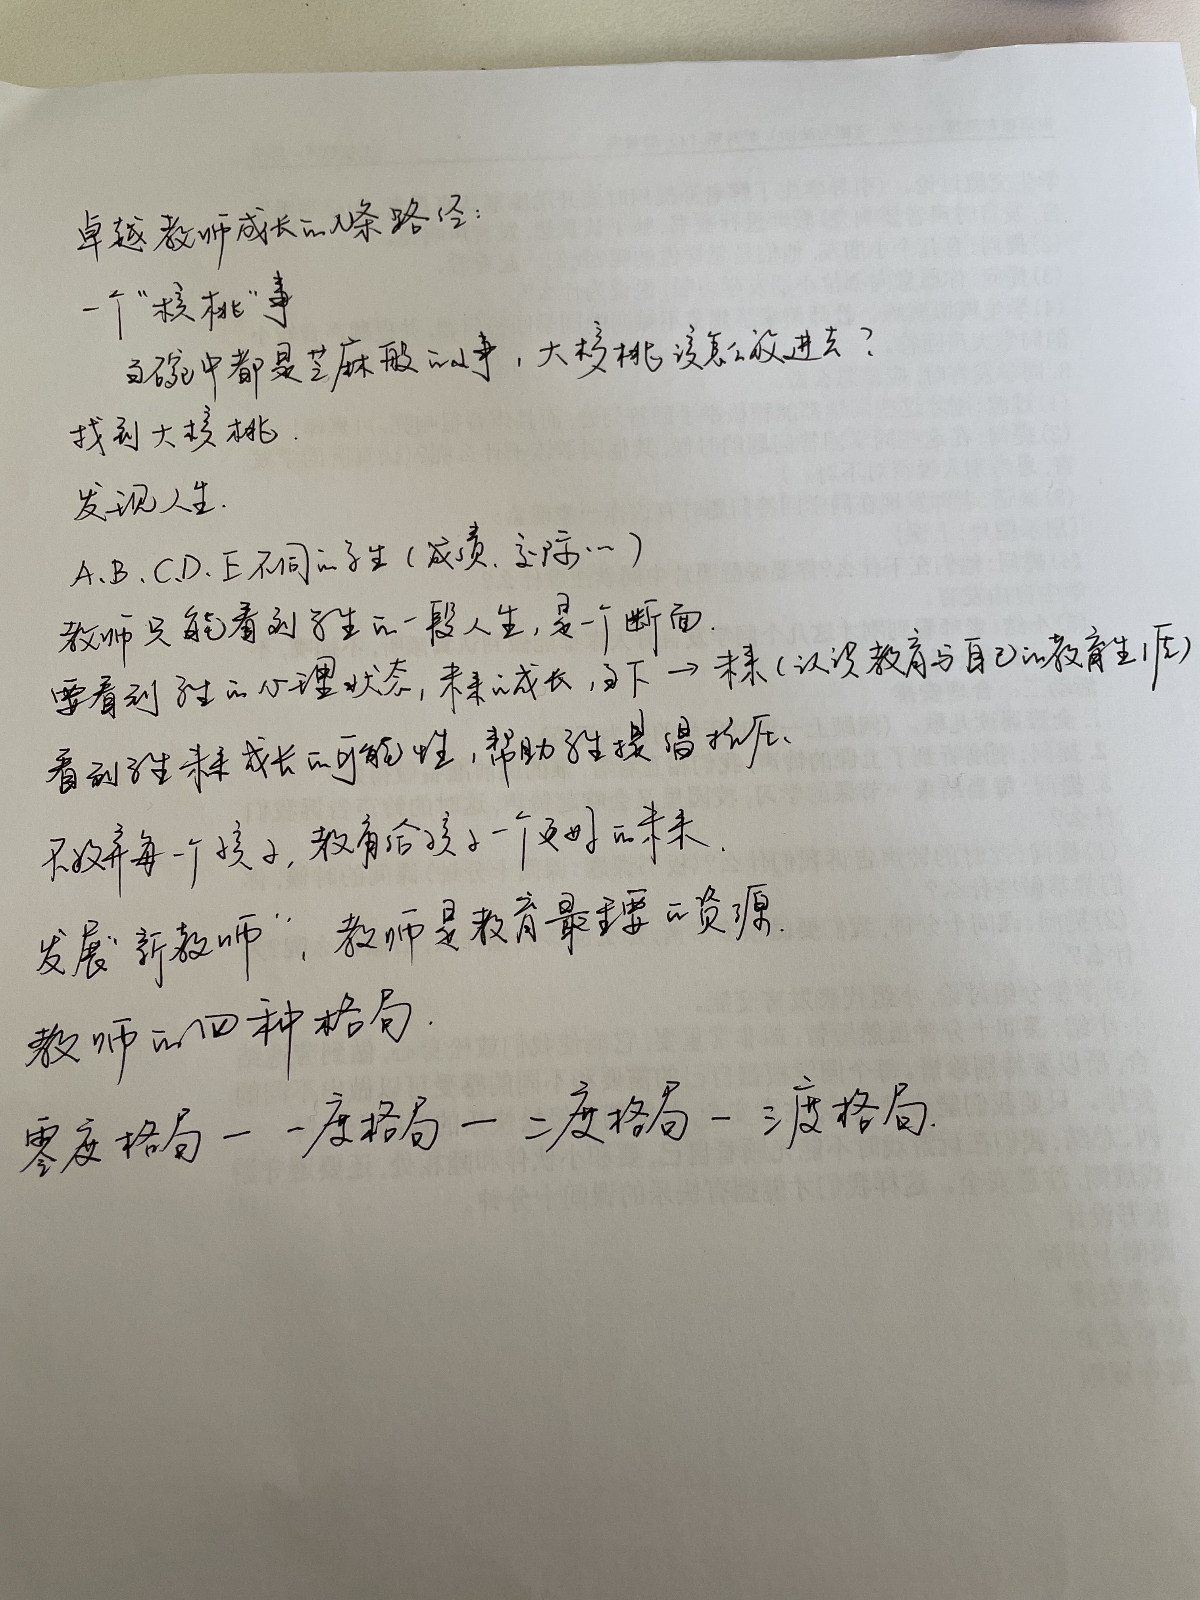 卓越教师成长的N条路径：
一个“核桃”事
当碗中都是芝麻般的小事，大核桃该怎么放进去？
找到大核桃.
发现人生.
A、B、C、D、E不同的学生（成绩、交际…）
教师只能看到学生的一段人生，是一个断面.
要看到学生的心理状态，未来的成长，当下→未来（认识教育与自己的教育生涯）
看到学生未来成长的可能性，帮助学生提
不放弃每一个孩子，教育给孩子一个更好的未来.
发展“新教师”，教师是教育最重要的资源.
教师的四种格局.
零度格局—一度格局—二度格局—三度格局.